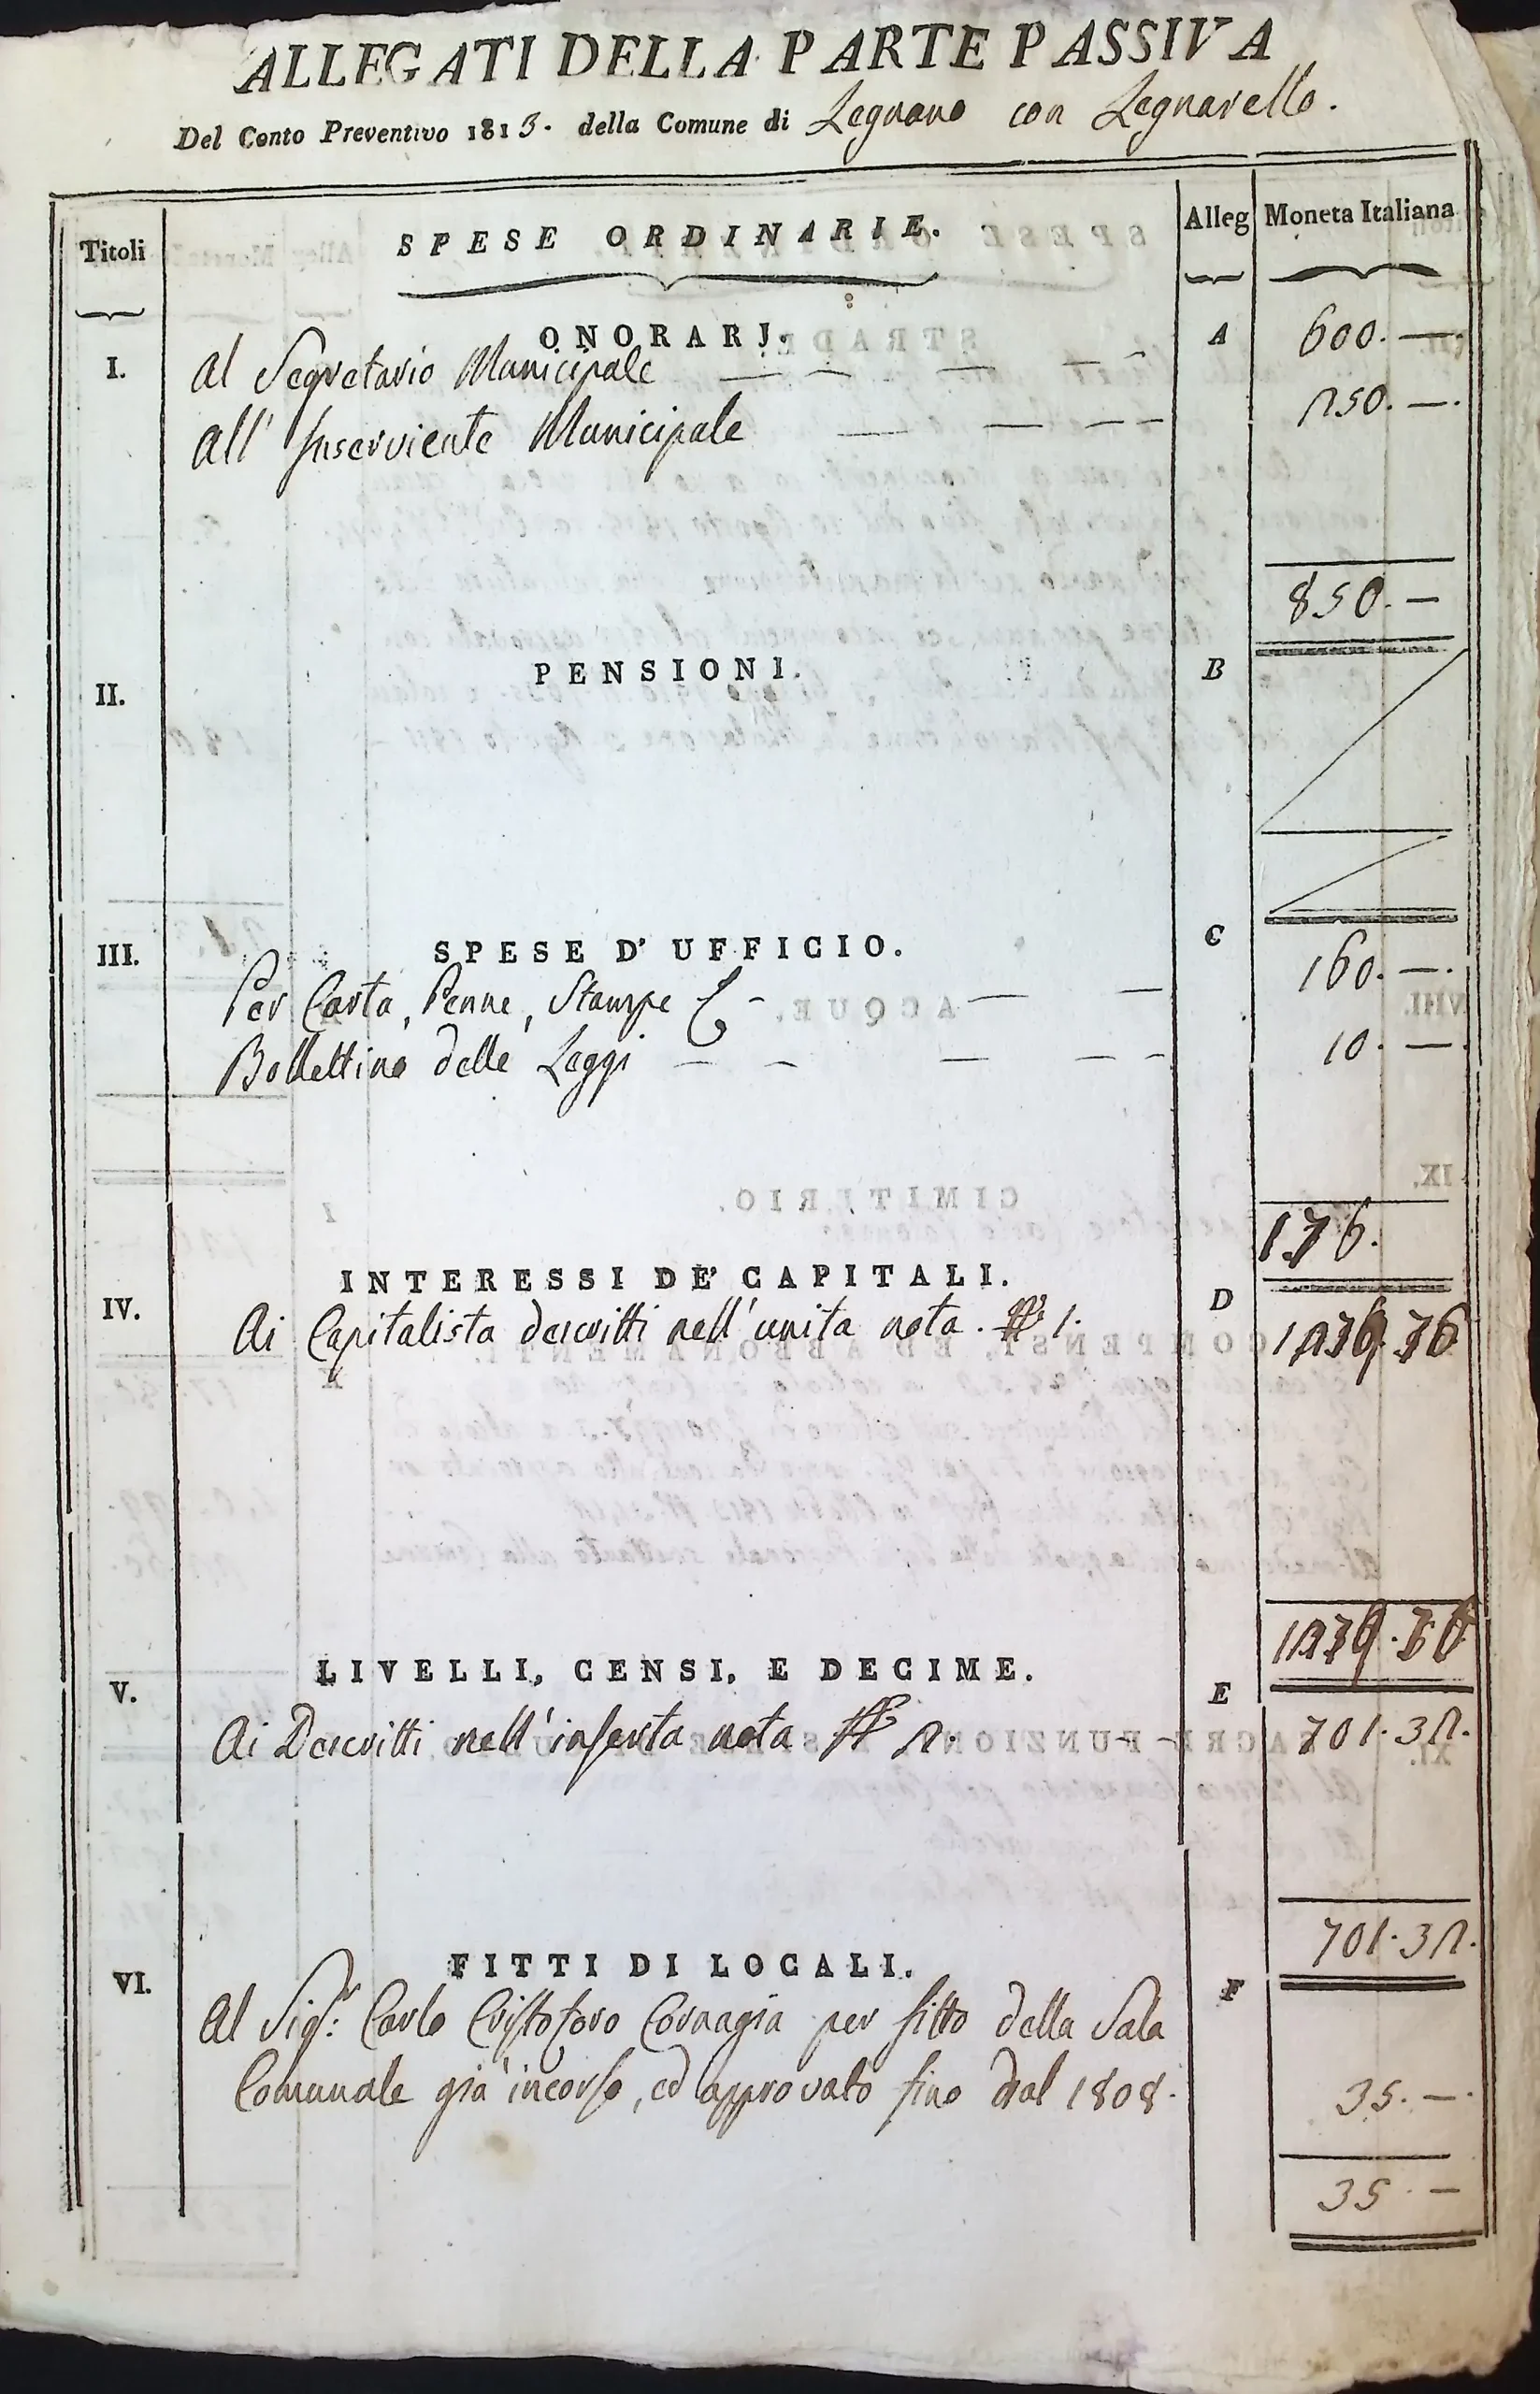 ALLEGATI DELLA PARTE PASSIVA
Del Conto Preventivo 1813. della Comune di Legnano con Legnarello.
Titoli SPESE ORDINARIE. Alleg Moneta Italiana
I. ONORARJ. A
Al Segretario Municipale — — — — 600. —.
All' Inserviente Municipale — — — — 250. —.
850. —
II. PENSIONI. B
III. SPESE D' UFFICIO. C
Per Carta, Penne, Stampe — — — 160. —.
Bollettino delle Leggi — — — — 10. —.
IV. INTERESSI DE' CAPITALI. D
Ai Capitalista descritti nell' unita nota. N.° 1.
V. LIVELLI, CENSI, E DECIME. E
Ai Descritti nell' inserta nota N.° 2. — — 701. 32.
701. 32.
VI. FITTI DI LOCALI. F
Al Sig.r Carlo Cristoforo Cornagia per fitto della Sala
Comunale già incorso, ed approvato fino dal 1808. 35. —.
35. —